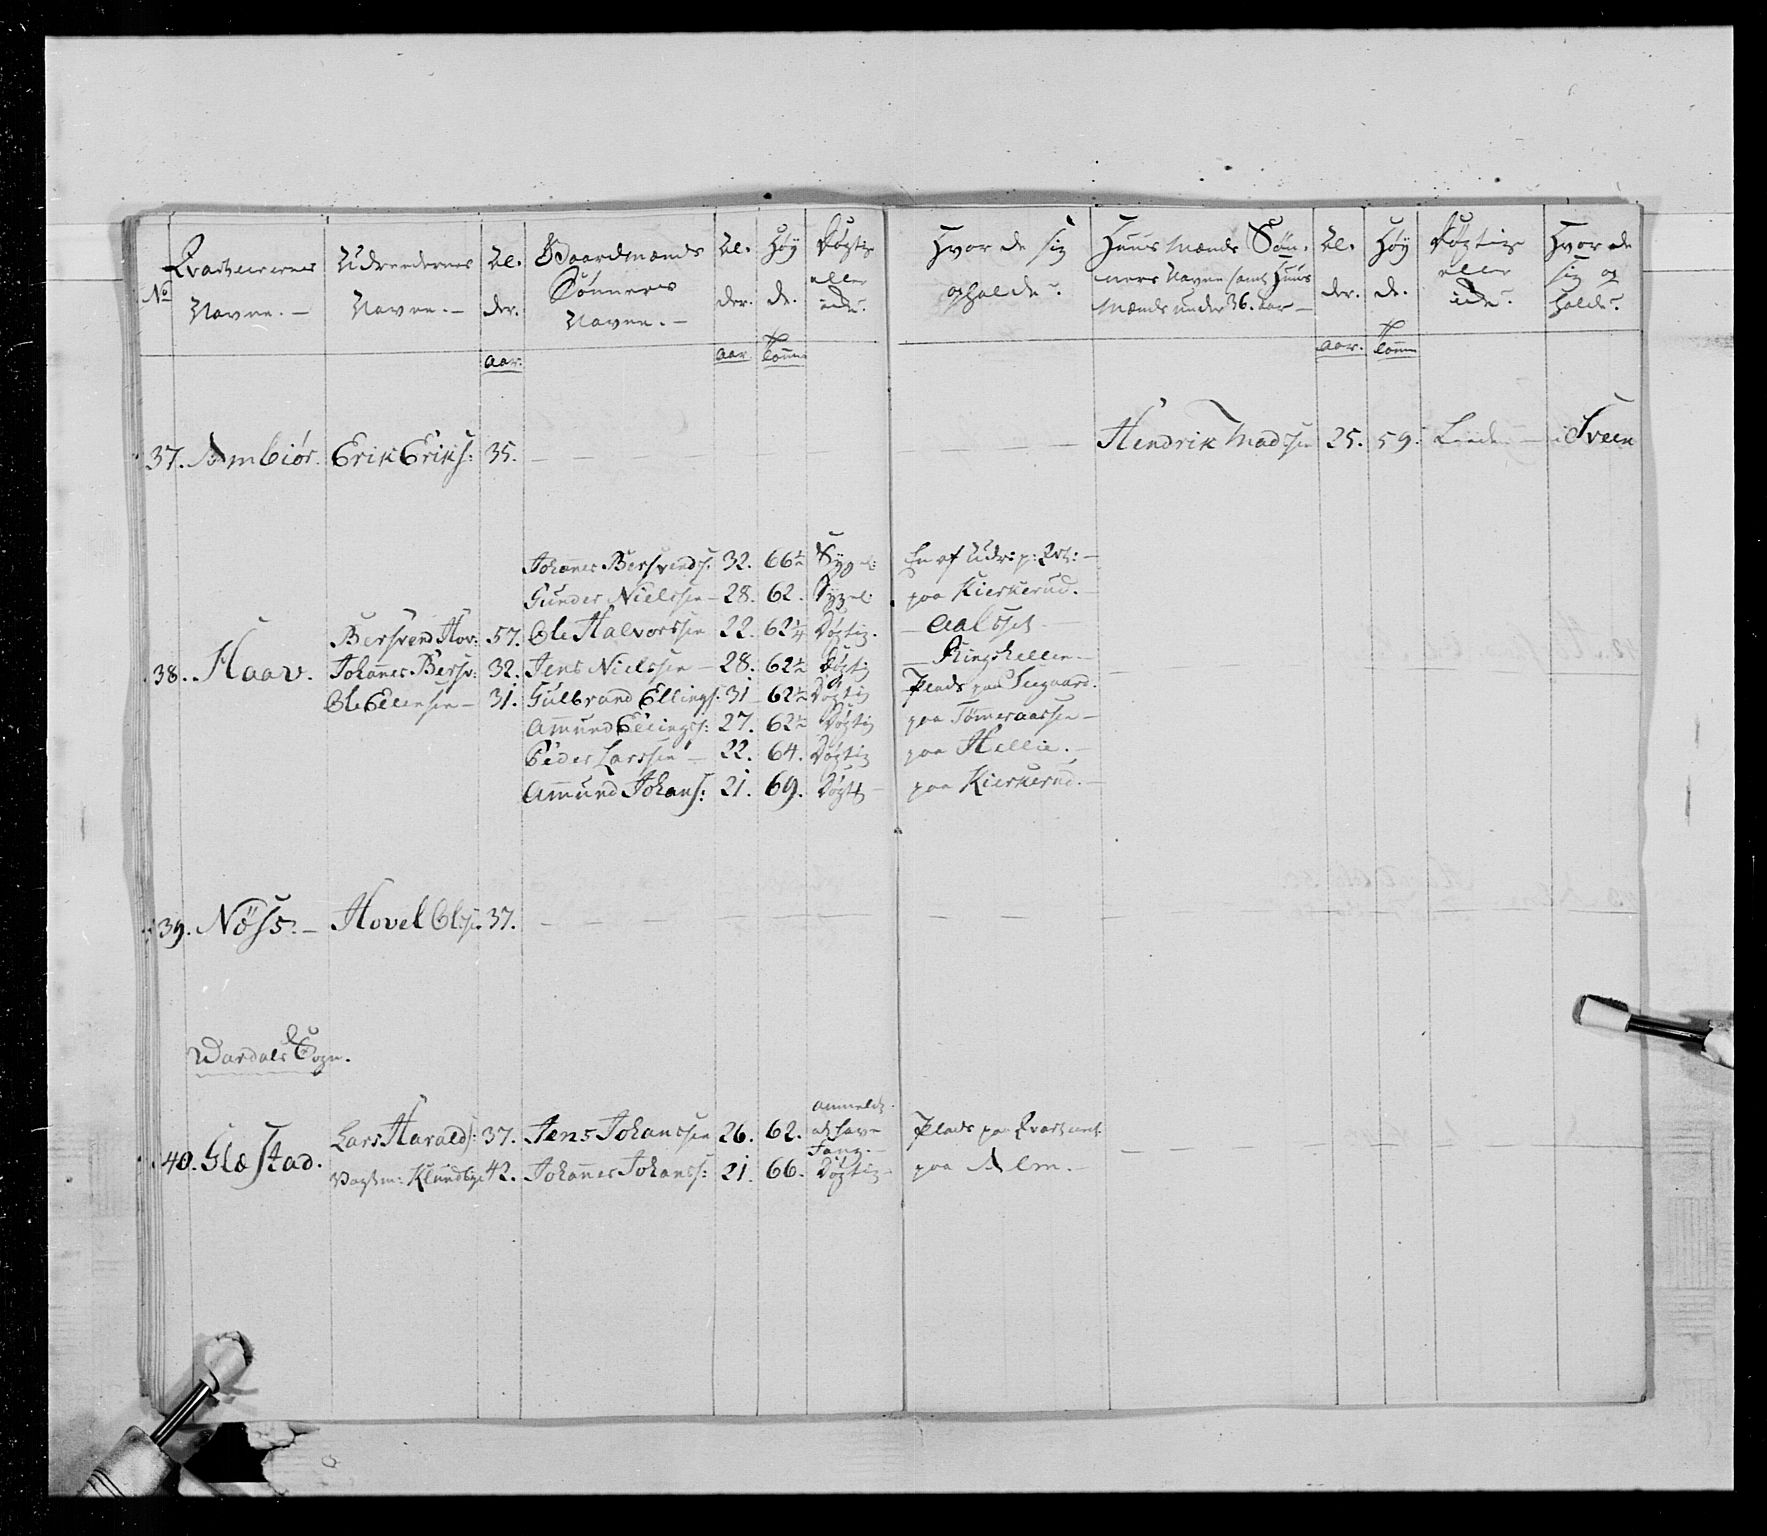 No Qvarterernes Navne. — Udreedernes Navne. — Al- der. Gaardmænds Sønners Navne. — Al- der. Høy de. Døgtig eller ide? Hvor de sig opholde? Huus Mænds Søn- ners Navne samt Huus Mænd under 36. Aar — Al- der. Høy de. Døgtige eller ide? Hvor de sig op holde?
Aar. Aar Tomm Aar. Tomm
37. Ambiör. Erik Eriks: 35. — — — — — Hendrik Madssen 25. 59. — i Sveen
Johanes Bersvends: 32. 66½ Sygel: En af Udr: p: Qvt: —
Gunder Nielssen — 28. 62. Sygel: paa Kierkerud. —
Bersvend Hov: 57. Ole Halvorssen 22. 62¼ Døgtig. — Aalsset —
38. Haav. Johanes Bersv: 32. Jens Nielssen — 28. 62½ Døgtig — Ringhellen —
Ole Ellensen — 31. Gulbrand Ellings: 31 62½ Døgtig Plads paa Seegaard.
Amund Ellingss: 27. 62½ Døgtig paa Tømeraassen —
Peder Larssen — 22. 64. Døgtig paa Hellie. —
Amund Johans: 21. 69. Døgt — paa Kierkerud. —
39. Nöss. — Hovel Olss. 37. — — — — —
Wardals Sogn.
40. Glæstad. Lars Haralds: 37. Jens Johanssen 26. 62. anmeldt at have Fang. — Plads paa Qvarteret
Vagtm: Klundbye 42. Johanes Johanss: 21. 66. Døgtig — paa Alm. —